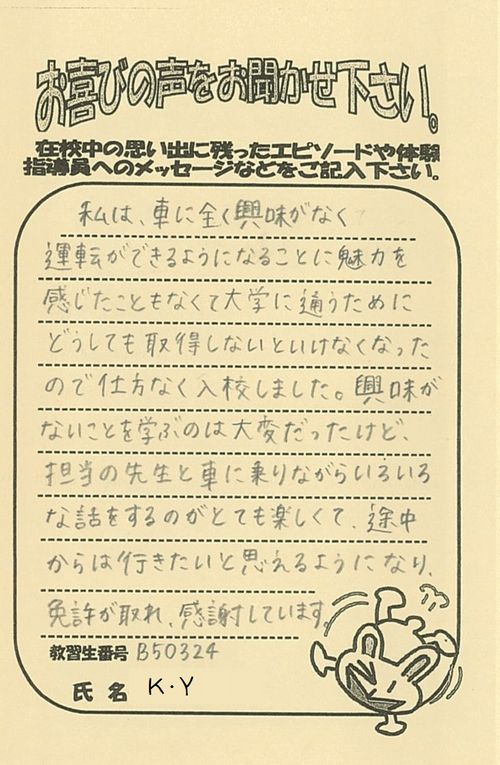 お喜びの声をお聞かせ下さい。
在校中の思い出に残ったエピソードや体験
指導員へのメッセージなどをご記入下さい。
私は、車に全く興味がなく
運転ができるようになることに魅力を
感じたこともなくて大学に通うために
どうしても取得しないといけなくなった
ので仕方なく入校しました。興味が
ないことを学ぶのは大変だったけど、
担当の先生と車に乗りながらいろいろ
な話をするのがとても楽しくて、途中
からは行きたいと思えるようになり、
免許が取れ、感謝しています。
教習生番号 B50324
氏名 K・Y